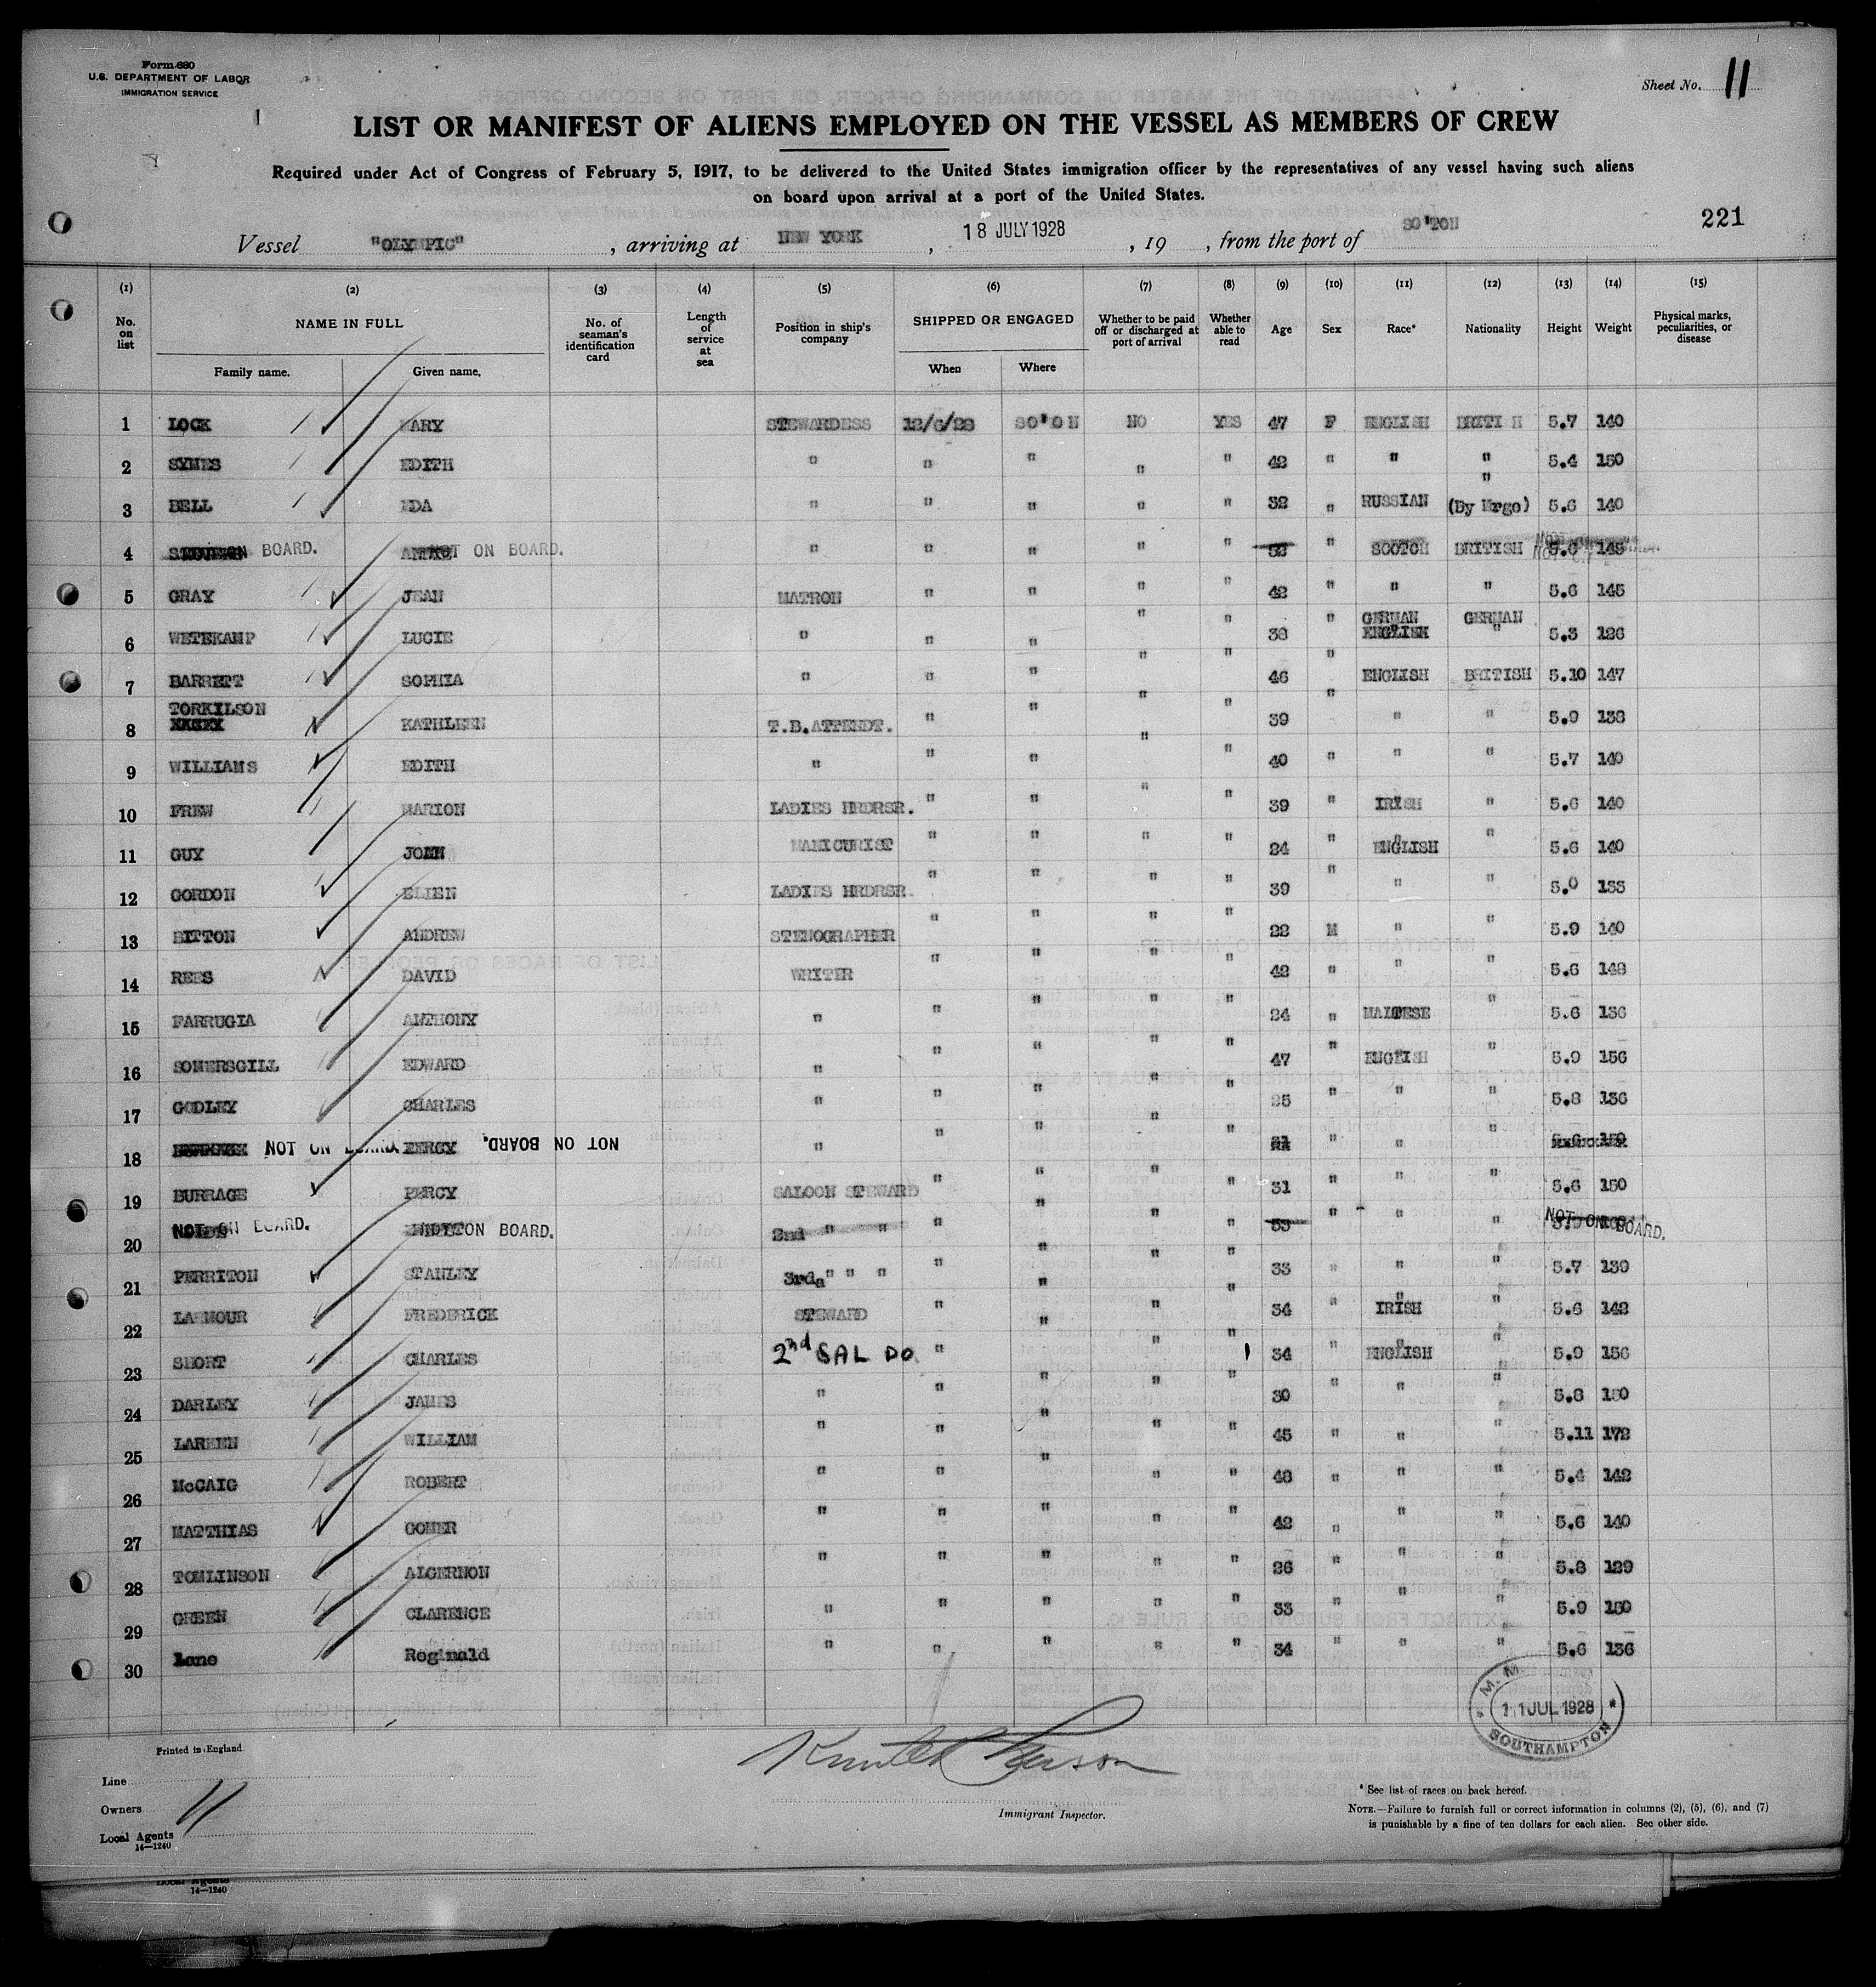 Form 680
U.S. DEPARTMENT OF LABOR
IMMIGRATION SERVICE
Sheet No. 11
LIST OR MANIFEST OF ALIENS EMPLOYED ON THE VESSEL AS MEMBERS OF CREW
Required under Act of Congress of February 5, 1917, to be delivered to the United States immigration officer by the representatives of any vessel having such aliens
on board upon arrival at a port of the United States.
Vessel "OLYMPIC" , arriving at NEW YORK , 18 JULY 1928 , 19 , from the port of SO'TON 221
(1) (2) (3) (4) (5) (6) (7) (8) (9) (10) (11) (12) (13) (14) (15)
No. on list NAME IN FULL Family name. Given name. No. of seaman's identification card Length of service at sea Position in ship's company SHIPPED OR ENGAGED When Where Whether to be paid off or discharged at port of arrival Whether able to read Age Sex Race* Nationality Height Weight Physical marks, peculiarities, or disease
1 LOCK MARY STEWARDESS 12/6/28 SO'ON NO YES 47 F ENGLISH BRITI H 5.7 140
2 SYMES EDITH " " " " " 42 " " " 5.4 150
3 BELL EDA " " " " " 32 " RUSSIAN " (By Mrge) 5.6 140
4 ON BOARD. NOT ON BOARD. " " " " " 32 " SCOTCH BRITISH
5 GRAY JEAN MATRON " " " " 42 " " " 5.6 145
6 WETEKAMP LUCIE " " " " " 38 " GERMAN ENGLISH GERMAN " 5.3 126
7 BARRETT SOPHIA " " " " " 46 " ENGLISH BRITISH 5.10 147
8 TORKILSON KATHLEEN T.B.ATTENDT. " " " " 39 " " " 5.9 138
9 WILLIAMS EDITH " " " " " 40 " " 5.7 140
10 FREW MARION LADIES HRDRSR. " " " " 39 " IRISH " 5.6 140
11 GUY JOHN MANICURIST " " " " 24 ENGLISH " 5.6 140
12 GORDON ELLEN LADIES HRDRSR. " " " " 39 " " " 5.0 133
13 BITTON ANDREW STENOGRAPHER " " " " 22 M " " 5.9 140
14 REES DAVID WRITER " " " " 42 " " " 5.6 148
15 FARRUGIA ANTHONY " " " " " 24 " MALTESE " 5.6 136
16 SOMERSGILL EDWARD " " " " " 47 " ENGLISH " 5.9 156
17 GODLEY CHARLES " " " " " 25 " " " 5.8 136
18 NOT ON BOARD. PERCY NOT ON BOARD. " " " " " 31 " " "
19 BURRAGE PERCY SALOON STEWARD " " " " 31 " " " 5.6 150
20 NOT ON BOARD. NOT ON BOARD. 2nd " " " " " " 33 " " " NOT ON BOARD.
21 PERRITON STANLEY 3rd " " " " " " " 33 " " " 5.7 130
22 LARMOUR FREDERICK STEWARD " " " " 34 " IRISH " 5.6 142
23 SHORT CHARLES 2nd SAL DO. " " " " 34 " ENGLISH " 5.9 156
24 DARLEY JAMES " " " " " 30 " " " 5.8 150
25 LAREEN WILLIAM " " " " " 45 " " " 5.11 172
26 McCAIG ROBERT " " " " " 48 " " " 5.4 142
27 MATTHIAS GOMER " " " " " 42 " " " 5.6 140
28 TOMLINSON ALGERNON " " " " " 26 " " " 5.8 129
29 GREEN CLARENCE " " " " " 33 " " " 5.9 150
30 Lane Reginald " " " " " 34 " " " 5.6 136
M. M. 11 JUL 1928 SOUTHAMPTON
Printed in England
Line
Owners 11
Local Agents
14—1240
Immigrant Inspector.
* See list of races on back hereof.
NOTE.—Failure to furnish full or correct information in columns (2), (5), (6), and (7)
is punishable by a fine of ten dollars for each alien. See other side.
Local Agents
14—1240